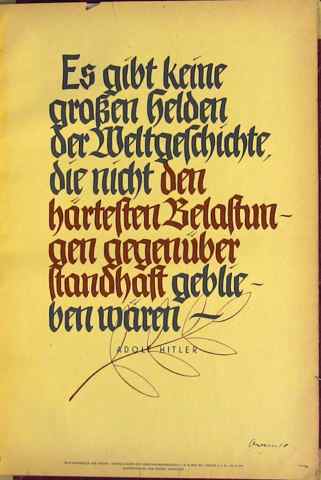 Es gibt keine
großen Helden
der Weltgeschichte,
die nicht den
härtesten Belastun-
gen gegenüber
standhaft geblie-
ben wären –
ADOLF HITLER